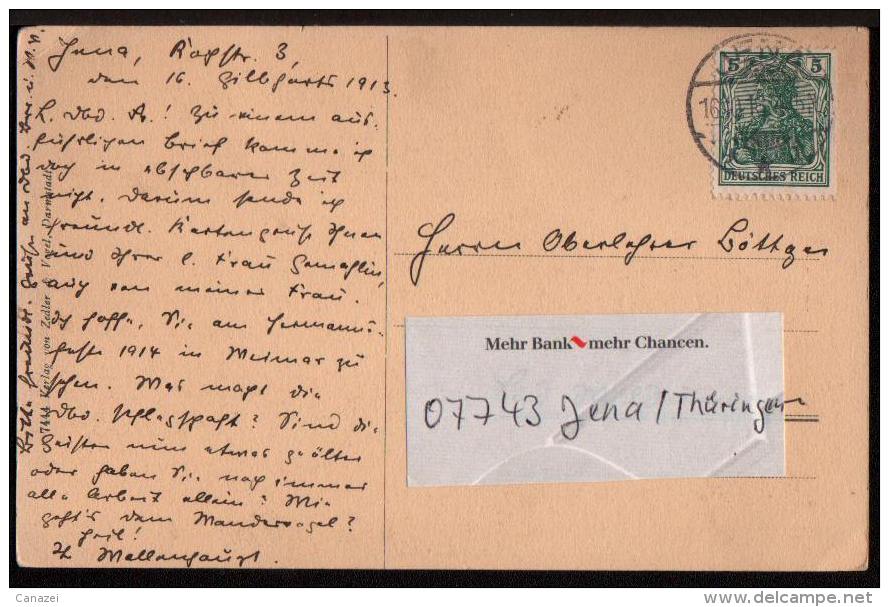 Jena, Kochstr. 3,
den 16. Gilbharts 1913.
L. Bbd. A.! Zu einem aus-
führlichen Brief komme ich
doch in absehbarer Zeit
nicht. Darum sende ich
freundl. Kartengruß Ihnen
und Ihrer l. Frau Gemahlin,
auch von meiner Frau.
Ich hoffe, Sie am Hermanns-
feste 1914 in Weimar zu
sehen. Was macht die
Bbd. schlagschaft? Sind die
Geister nun etwas geölter
oder haben Sie noch immer
alle Arbeit allein? Wie
geht's dem Wandervogel?
Heil!
Mellenhaupt.
Bitte freundl. Grüße an
7444 Verlag von Zedler & Vogel, Darmstadt
5 5
DEUTSCHES REICH
JENA
16.10.13
Herrn Oberlehrer Böttger
Mehr Bank mehr Chancen.
07743 Jena/Thüringen
Canazei
www.delcampe.net